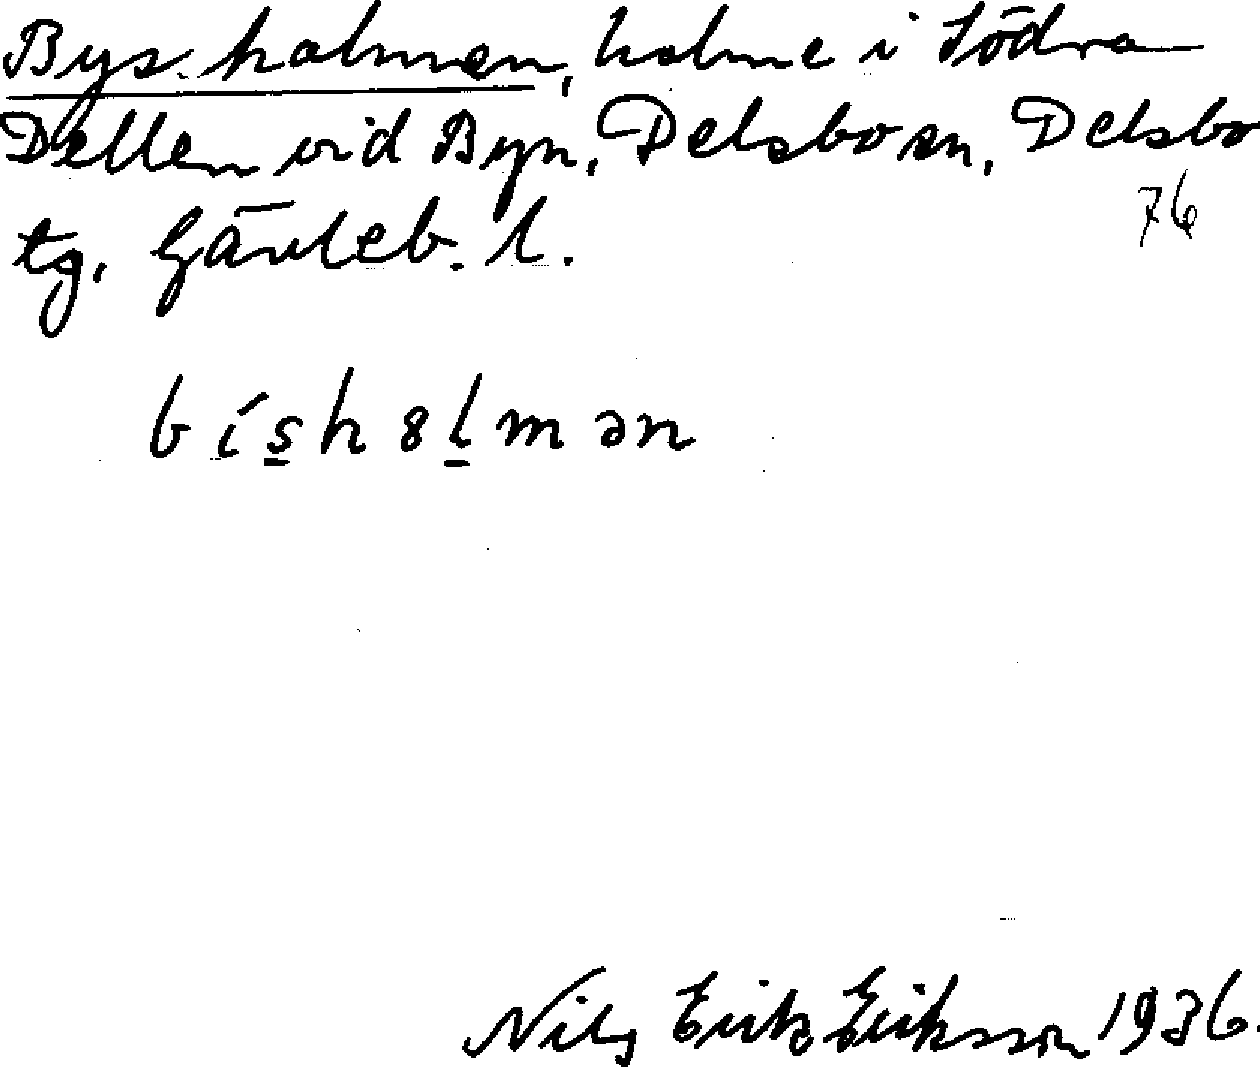 Bys. holmen, holme i Södra
Dellen vid Byn, Delsbo sn, Delsbo
tg. Gävleb. l.
76
bís̲h8l̲mən
Nils Erik Eriksson 1936.